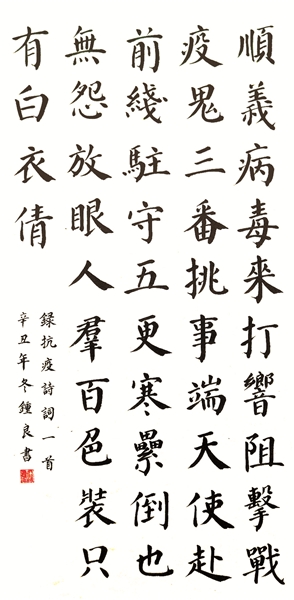 順義病毒來打響阻擊戰
疫鬼三番挑事端天使赴
前綫駐守五更寒纍倒也
無怨放眼人羣百色裝只
有白衣倩
録抗疫詩詞一首
辛丑年冬鍾良書